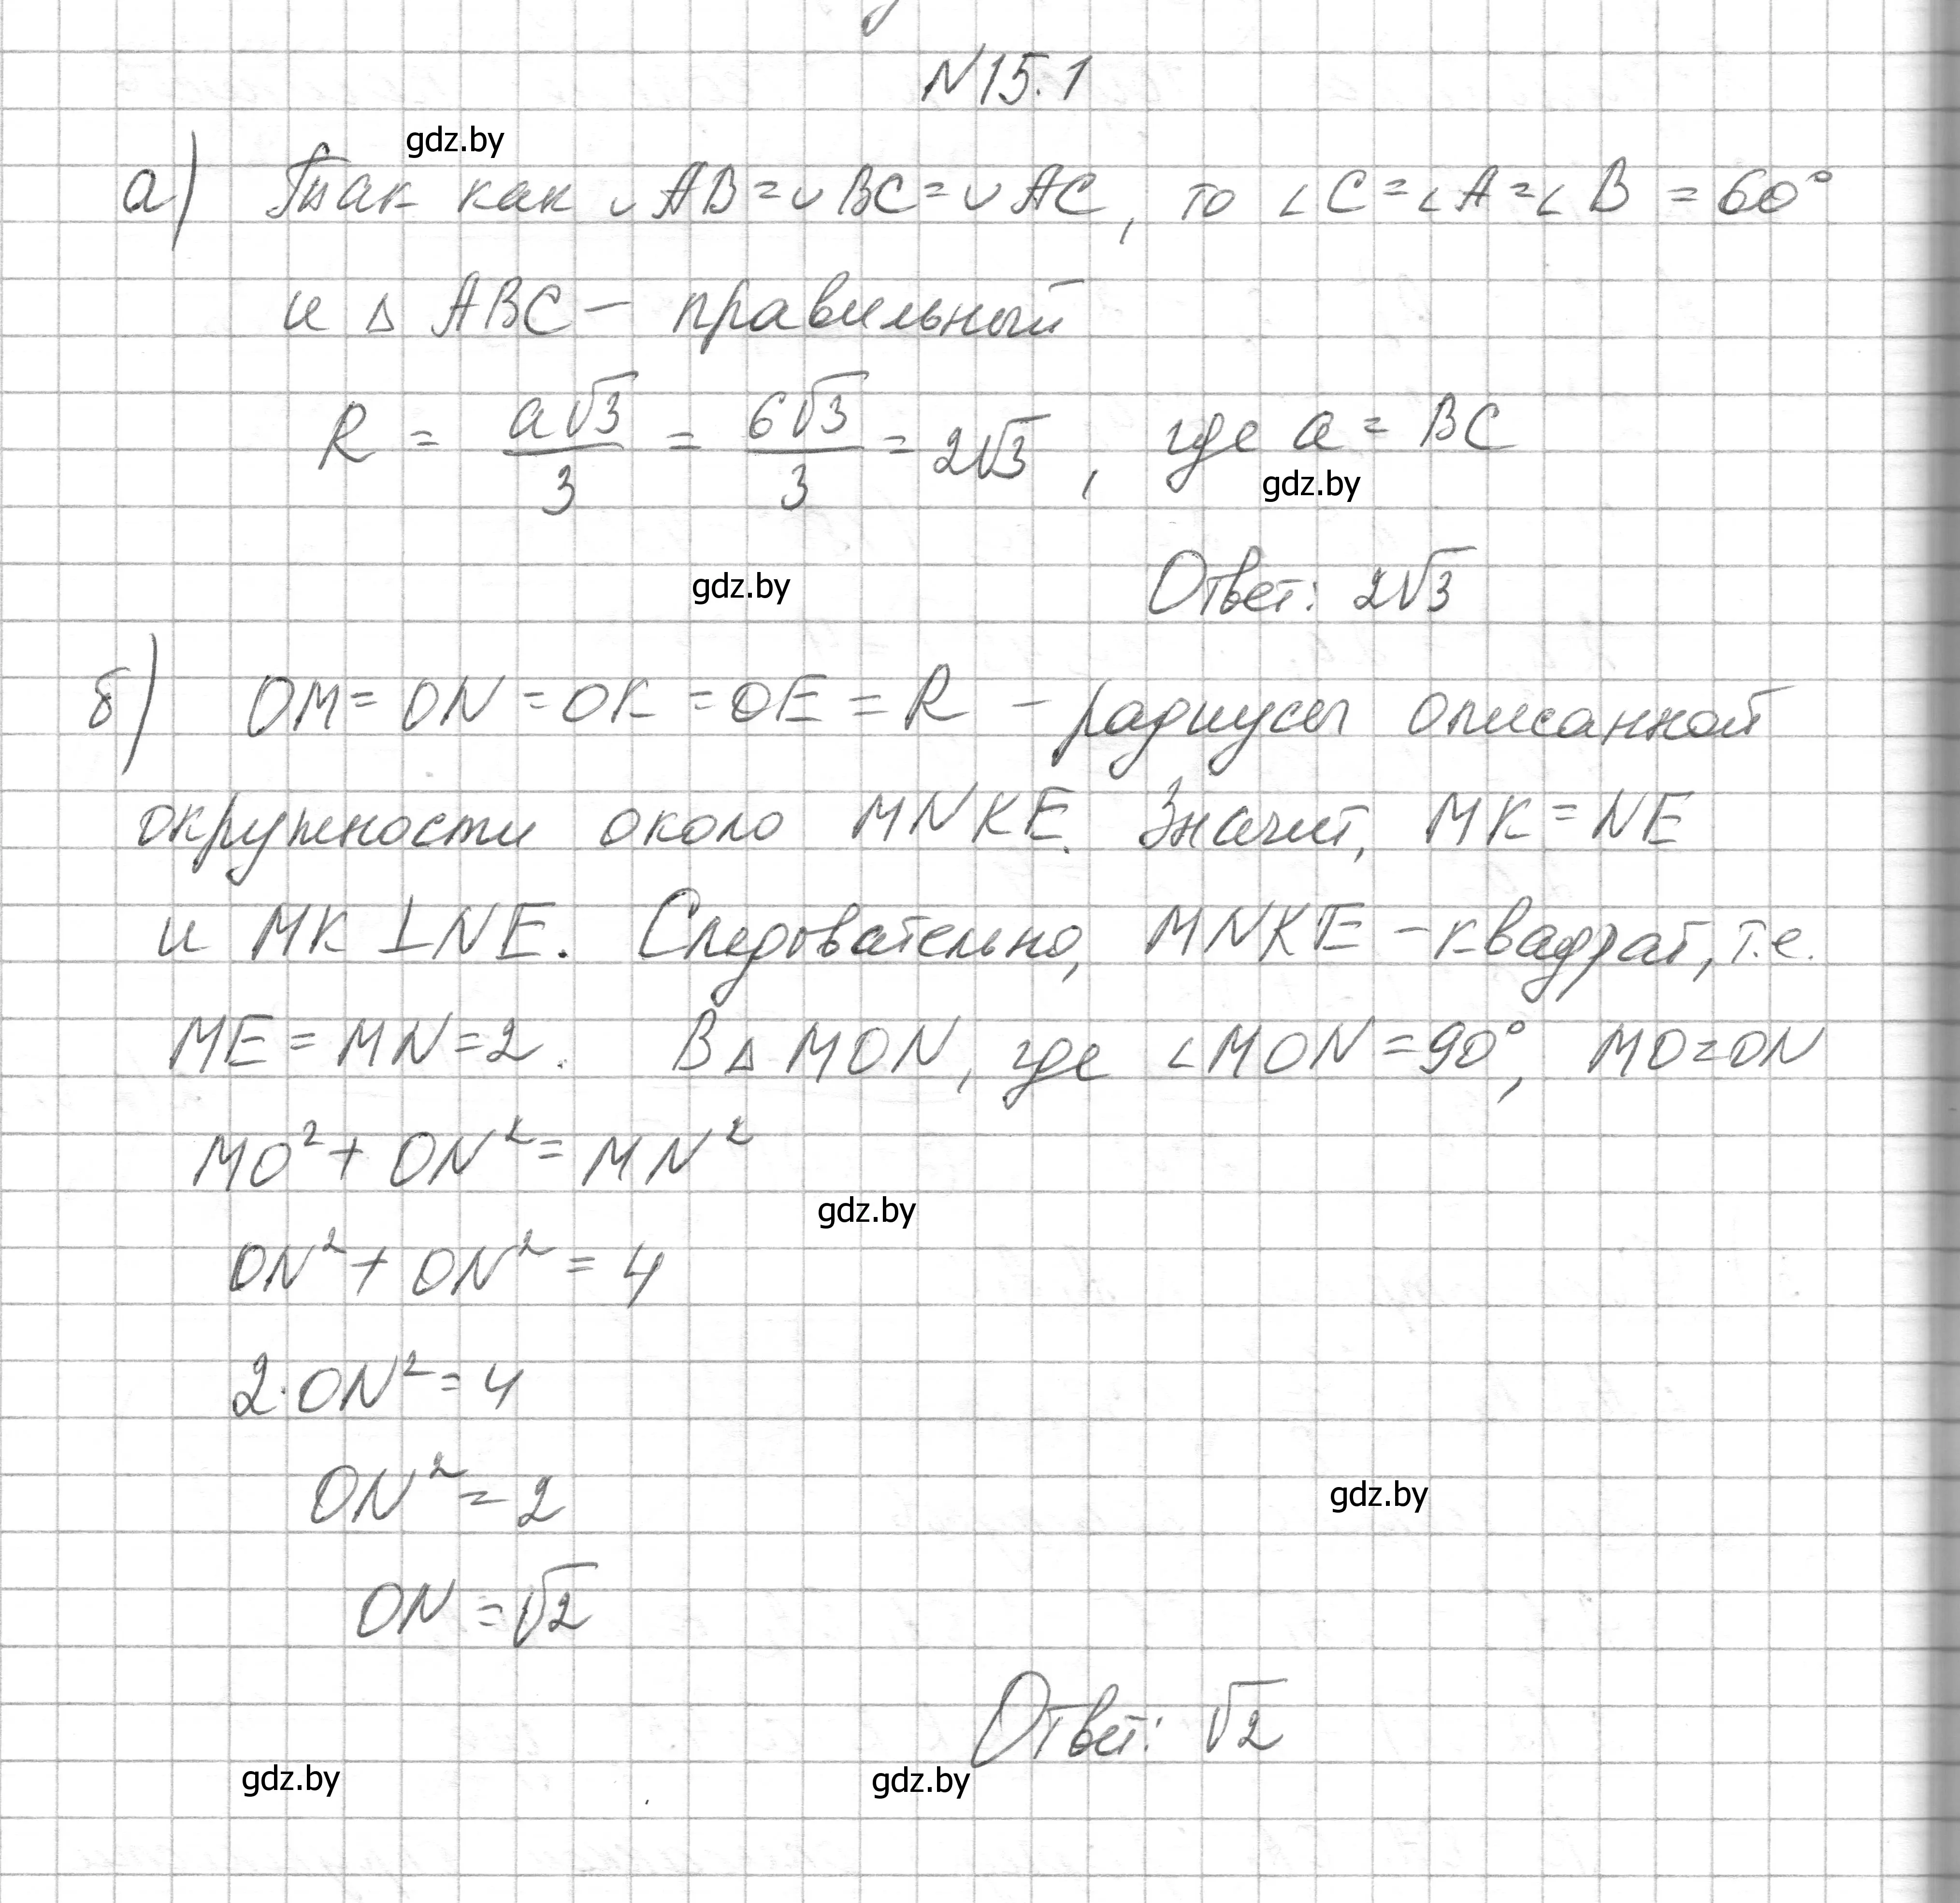 N15.1
gdz.by
а) Так как ∪AB=∪BC=∪AC, то ∠C=∠A=∠B=60°
и △ABC – правильный
R = a√3/3 = 6√3/3 = 2√3, где a = BC
gdz.by
gdz.by
Ответ: 2√3
б) OM=ON=OK=OE=R – радиусы описанной
окружности около MNKE. Значит, MK=NE
и MK⊥NE. Следовательно, MNKE – квадрат, т.е.
ME=MN=2. В △MON, где ∠MON=90°, MO=ON
MO²+ON²=MN²
gdz.by
ON²+ON²=4
2·ON²=4
ON²=2
gdz.by
ON=√2
Ответ: √2
gdz.by
gdz.by